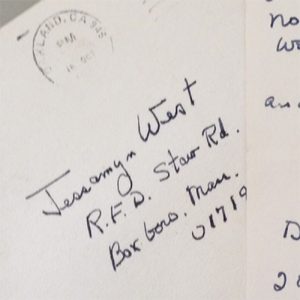 OAKLAND, CA 946
PM
Jessamyn West
R.F.D. Stow Rd.
Boxboro. Mass.
01719
no
we
an
D
2